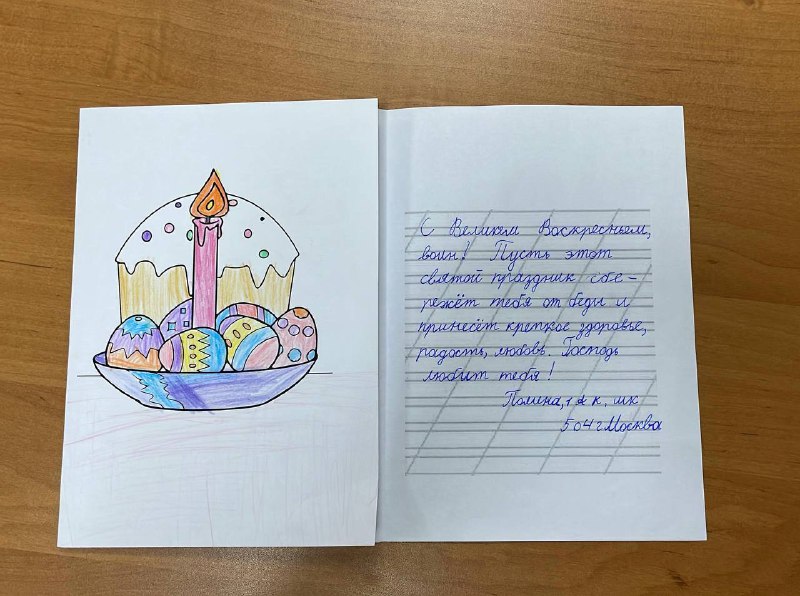 С Великим Воскресеньем,
воин! Пусть этот
святой праздник сбе-
режёт тебя от беды и
принесёт крепкое здоровье,
радость, любовь. Господь
любит тебя!
Полина, 1 к. шк
504 г Москва